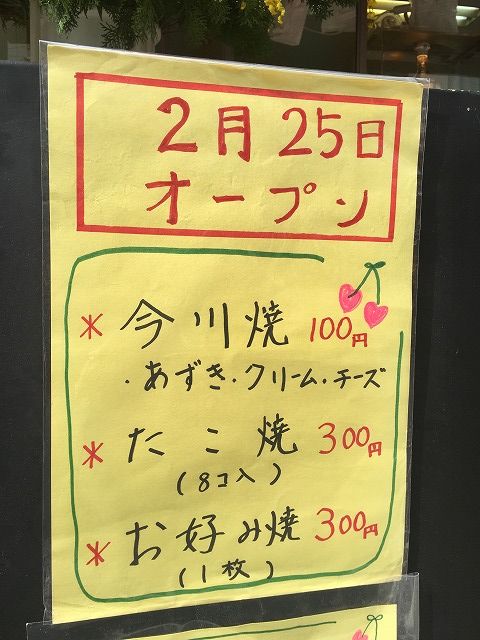 2月25日
オープン
* 今川焼 100円
・あずき・クリーム・チーズ
* たこ焼 300円
(8コ入)
* お好み焼 300円
(1枚)